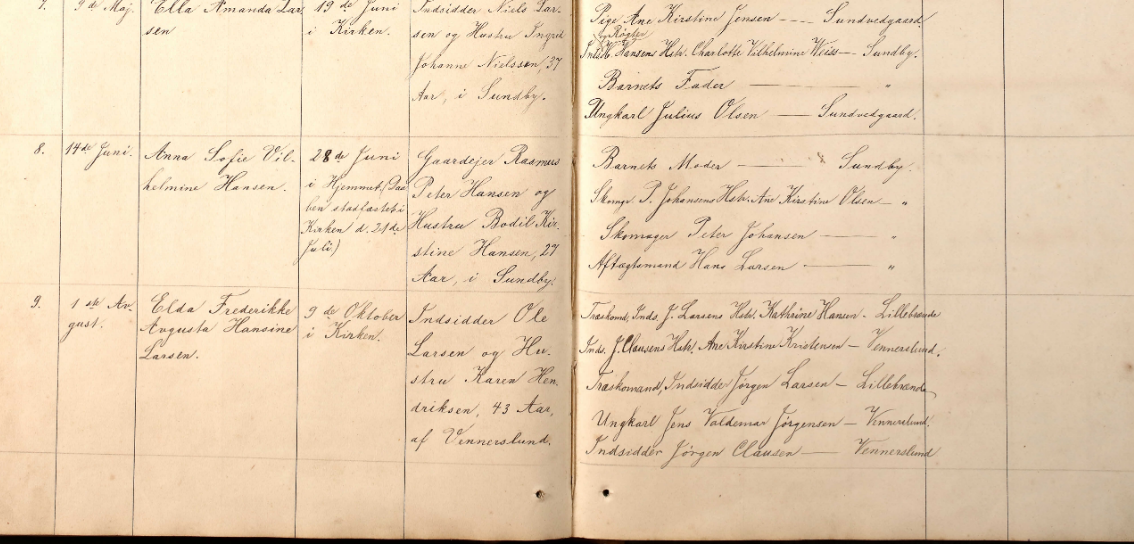 7. 9de Maj. Ella Amanda Lar- 19de Juni Indsidder Niels Lar- Pige Ane Kirstine Jensen --- Sundvedgaard
sen i Kirken. sen og Hustru Ingrid Hansens Hstr. Charlotte Vilhelmine Weiss — Sundby.
Johanne Nielssen, 37 Barnets Fader — "
Aar, i Sundby. Ungkarl Julius Olsen — Sundvedgaard.
8. 14de Juni. Anna Sofie Vil- 28de Juni Gaardejer Rasmus Barnets Moder — Sundby.
helmine Hansen. i Hjemmet (Daa- Peter Hansen og Skomgr. P. Johansens Hstr. Ane Kirstine Olsen — "
ben stadfæstet i Hustru Bodil Kir- Skomager Peter Johansen — "
Kirken d. 21de stine Hansen, 27 Aftægtsmand Hans Larsen — "
Juli) Aar, i Sundby.
9. 1ste Av- Elda Frederikke 9de Oktober Indsidder Ole Træskomd, Inds. J. Larsens Hstr. Kathrine Hansen - Lillebrænde
gust. Avgusta Hansine i Kirken. Larsen og Hu- Inds. J. Clausens Hstr. Ane Kirstine Kristensen — Vennerslund.
Larsen. stru Karen Hen- Træskomand, Indsidder Jørgen Larsen — Lillebrænde
driksen, 43 Aar, Ungkarl Jens Valdemar Jørgensen — Vennerslund.
af Vennerslund. Indsidder Jørgen Clausen — Vennerslund